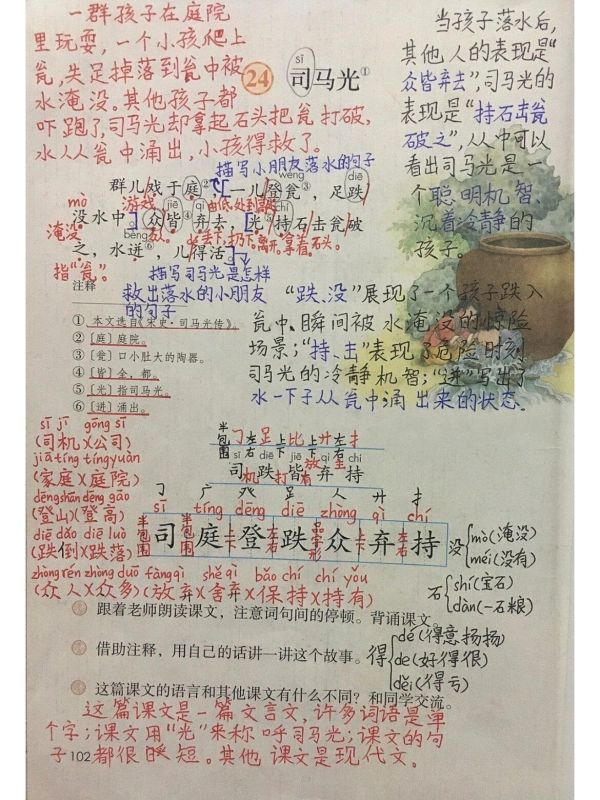 一群孩子在庭院
里玩耍,一个小孩爬上
瓮,失足掉落到瓮中被
水淹没。其他孩子都
吓跑了,司马光却拿起石头把瓮打破,
水从瓮中涌出,小孩得救了。
sī
24 司马光①
当孩子落水后,
其他人的表现是“
众皆弃去”,司马光的
表现是“持石击瓮
破之”,从中可以
看出司马光是一
个聪明机智、
沉着冷静的
孩子。
描写小朋友落水的句子
wèng diē
群儿戏于庭②,一儿登瓮③,足跌
mò 游戏 jiē qì 由低处到高处
没水中,众皆④弃去,光⑤持石击瓮破
淹没 众人。 离开。拿着石头。
bèng
之,水迸⑥,儿得活。
指“瓮”。
描写司马光是怎样
救出落水的小朋友
的句子
注释
① 本文选自《宋史·司马光传》。
② [庭] 庭院。
③ [瓮] 口小肚大的陶器。
④ [皆] 全,都。
⑤ [光] 指司马光。
⑥ [迸] 涌出。
“跌、没”展现了一个孩子跌入
瓮中、瞬间被水淹没的惊险
场景;“持、击”表现了危险时刻,
司马光的冷静机智;“迸”写出了
水一下子从瓮中涌出来的状态。
sī jī gōng sī
(司机)(公司)
jiā tíng tíng yuàn
(家庭)(庭院)
dēng shān dēng gāo
(登山)(登高)
diē dǎo diē luò
(跌倒)(跌落)
zhòng rén zhòng duō fàng qì shě qì bǎo chí chí yǒu
(众人)(众多)(放弃)(舍弃)(保持)(持有)
半包围 左右 上下 上下 左右
sī diē jiē qì chí
司 跌 皆 弃 持
司机 打
㇆ 广 癶 𧾷 人 廾 扌
sī tíng dēng diē zhòng qì chí
司 庭 登 跌 众 弃 持
半包围 半包围 上下 左右 品字形 上下 左右
没 mò(淹没)
méi(没有)
石 shí(宝石)
dàn(一石粮)
跟着老师朗读课文,注意词句间的停顿。背诵课文。
借助注释,用自己的话讲一讲这个故事。
得 dé(得意扬扬)
de(好得很)
děi(得亏)
这篇课文的语言和其他课文有什么不同?和同学交流。
这篇课文是一篇文言文,许多词语是单
个字;课文用“光”来称呼司马光;课文的句
子都很简短。其他课文是现代文。
102